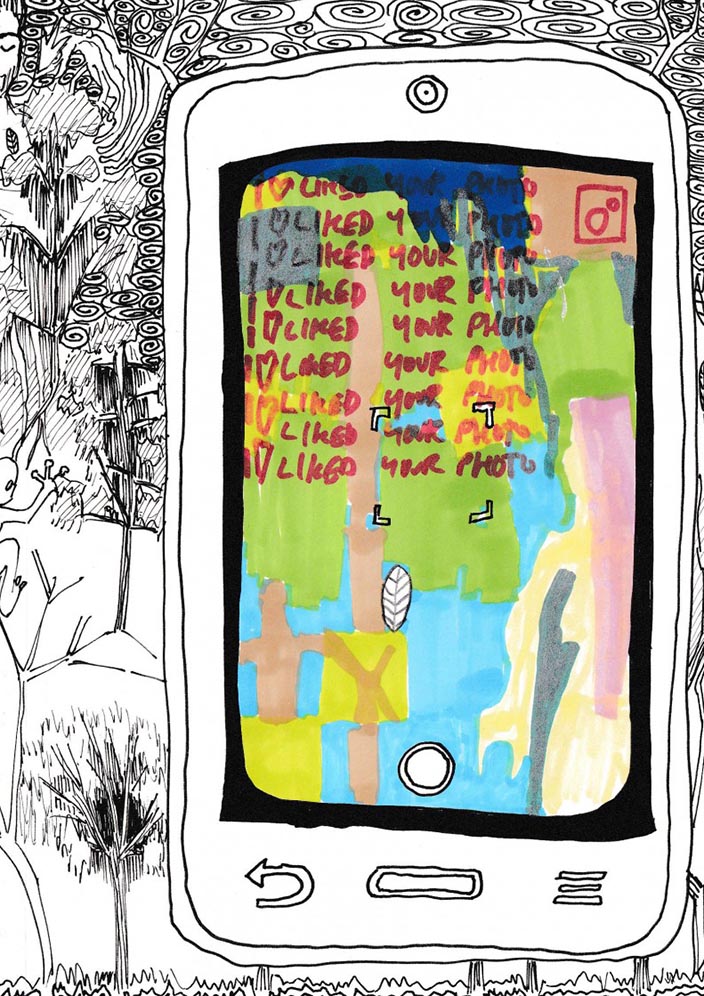 1 ♡ LIKED YOUR PHOTO
1 ♡ LIKED YOUR PHOTO
1 ♡ LIKED YOUR PHOTO
1 ♡ LIKED YOUR PHOTO
1 ♡ LIKED YOUR PHOTO
1 ♡ LIKED YOUR PHOTO
1 ♡ LIKED YOUR PHOTO
1 LIKED YOUR PHOTO
1 ♡ LIKED YOUR PHOTO